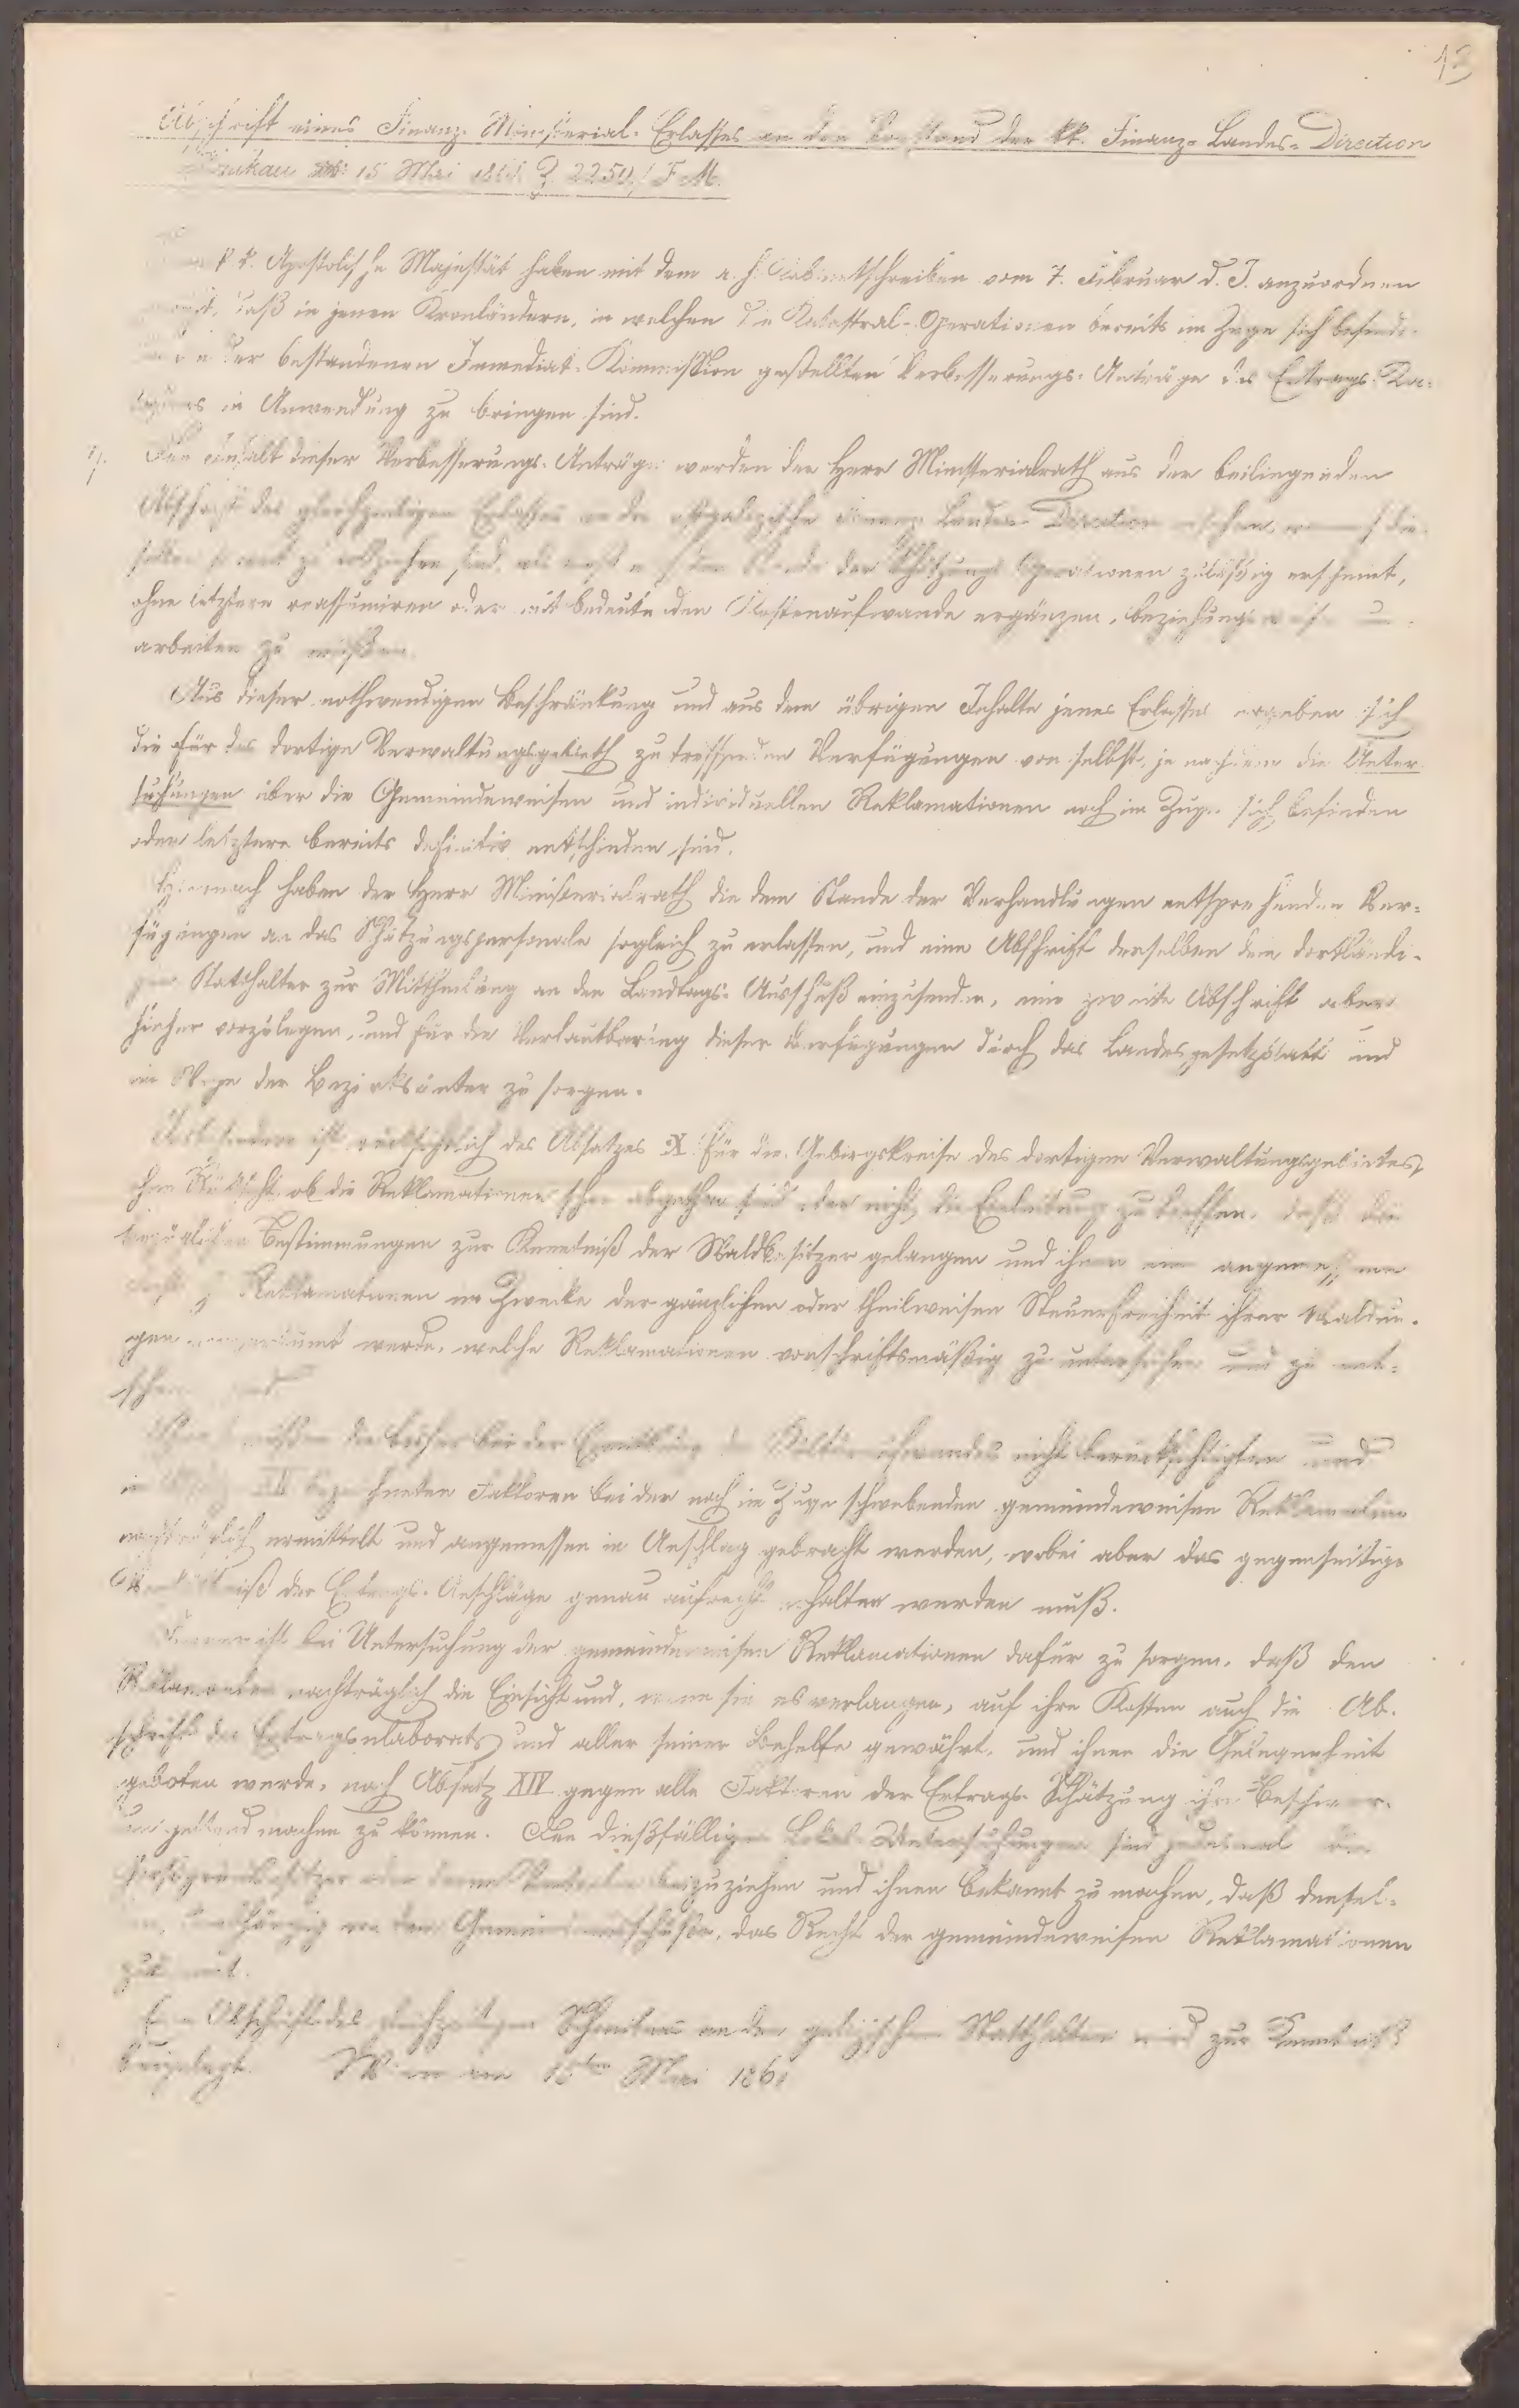 13
Abschrift eines Finanz-Ministerial-Erlasses an den Vorstand der kk. Finanz-Landes-Direction
Krakau 15 Mai 1861 Z. 2250/F M.
k k. Apostolische Majestät haben mit dem a. h. Cabinetschreiben vom 7. Februar d. J. anzuordnen
daß in jenen Kronländern, in welchen die Katastral-Operationen bereits im Zuge sich befinden
der bestandenen Immediat-Kommission gestellten Verbesserungs-Anträge des Ertrags-Ka-
in Anwendung zu bringen sind.
Den Inhalt dieser Verbesserungs-Anträge werden der Herr Ministerialrath aus der beiliegenden
Abschrift des gleichzeitigen Erlasses an die ostgalizische Finanz-Landes-Direction
zu vollziehen sind, als der Schätzungs Operationen zuläßig erscheint,
ohne letztere reassumiren oder mit bedeutenden Kostenaufwande ergänzen, beziehungsweise um-
arbeiten zu müßen.
Aus dieser nothwendigen Beschränkung und aus dem übrigen Inhalte jenes Erlasses ergeben sich
die für das dortige Verwaltungsgebieth zu treffenden Verfügungen von selbst, je nachdem die Unter-
suchungen über die Gemeindeweisen und individuellen Reklamationen noch im Zuge sich befinden
oder letztere bereits definitiv entschieden sind.
Hiernach haben der Herr Ministerialrath die dem Stande der Verhandlungen entsprechenden Ver-
fügungen an das Schätzungspersonale sogleich zu erlassen, und eine Abschrift derselben dem dortländi-
gen Statthalter zur Mittheilung an den Landtags-Ausschuß einzusenden, eine zweite Abschrift aber
hieher vorzulegen, und für die Verlautbarung dieser Verfügungen durch das Landesgesetzblatt und
im Wege der Bezirksämter zu sorgen.
Insbesondere ist rücksichtlich des Absatzes IX für die Gebirgskreise des dortigen Verwaltungsgebietes,
ohne Rücksicht, ob die Reklamationen schon abgethan sind oder nicht, die Einleitung zu treffen, daß die
bezüglichen Bestimmungen zur Kenntniß der Waldbesitzer gelangen und ihnen eine angemessene
Reklamationen im Zwecke der gänzlichen oder theilweisen Steuerfreiheit ihrer Waldun-
gen eingeräumt werde, welche Reklamationen vorschriftsmäßig zu untersuchen und zu ent-
müßen die bisher bei der Ermittlung des Kulturaufwandes nicht berücksichtigten und
im bezeichneten Faktoren bei der noch im Zuge schwebenden gemeindeweisen Reklamation
nachträglich ermittelt und angemessen in Anschlag gebracht werden, wobei aber das gegenseitige
Verhältniß der Ertrags-Anschläge genau aufrecht erhalten werden muß.
Ferner ist bei Untersuchung der gemeindeweisen Reklamationen dafür zu sorgen, daß den
Reklamanten nachträglich die Einsicht und, wenn sie es verlangen, auf ihre Kosten auch die Ab-
schrift des Ertragselaborats und aller seiner Behelfe gewährt, und ihnen die Gelegenheit
geboten werde, nach Absatz XIV gegen alle Faktoren der Ertrags-Schätzung ihre Beschwer-
den geltend machen zu können. Den dießfälligen Lokal-Untersuchungen sind jedesmal die
oder deren Vertreter beizuziehen und ihnen bekannt zu machen, daß densel-
ben, unabhängig von dem Gemeindeausschuße, das Recht der gemeindeweisen Reklamationen
zukommt.
Eine Abschrift des gleichzeitigen Schreibens an den galizischen Statthalter wird zur Kenntniß
beigelegt. Wien am 15ten Mai 1861